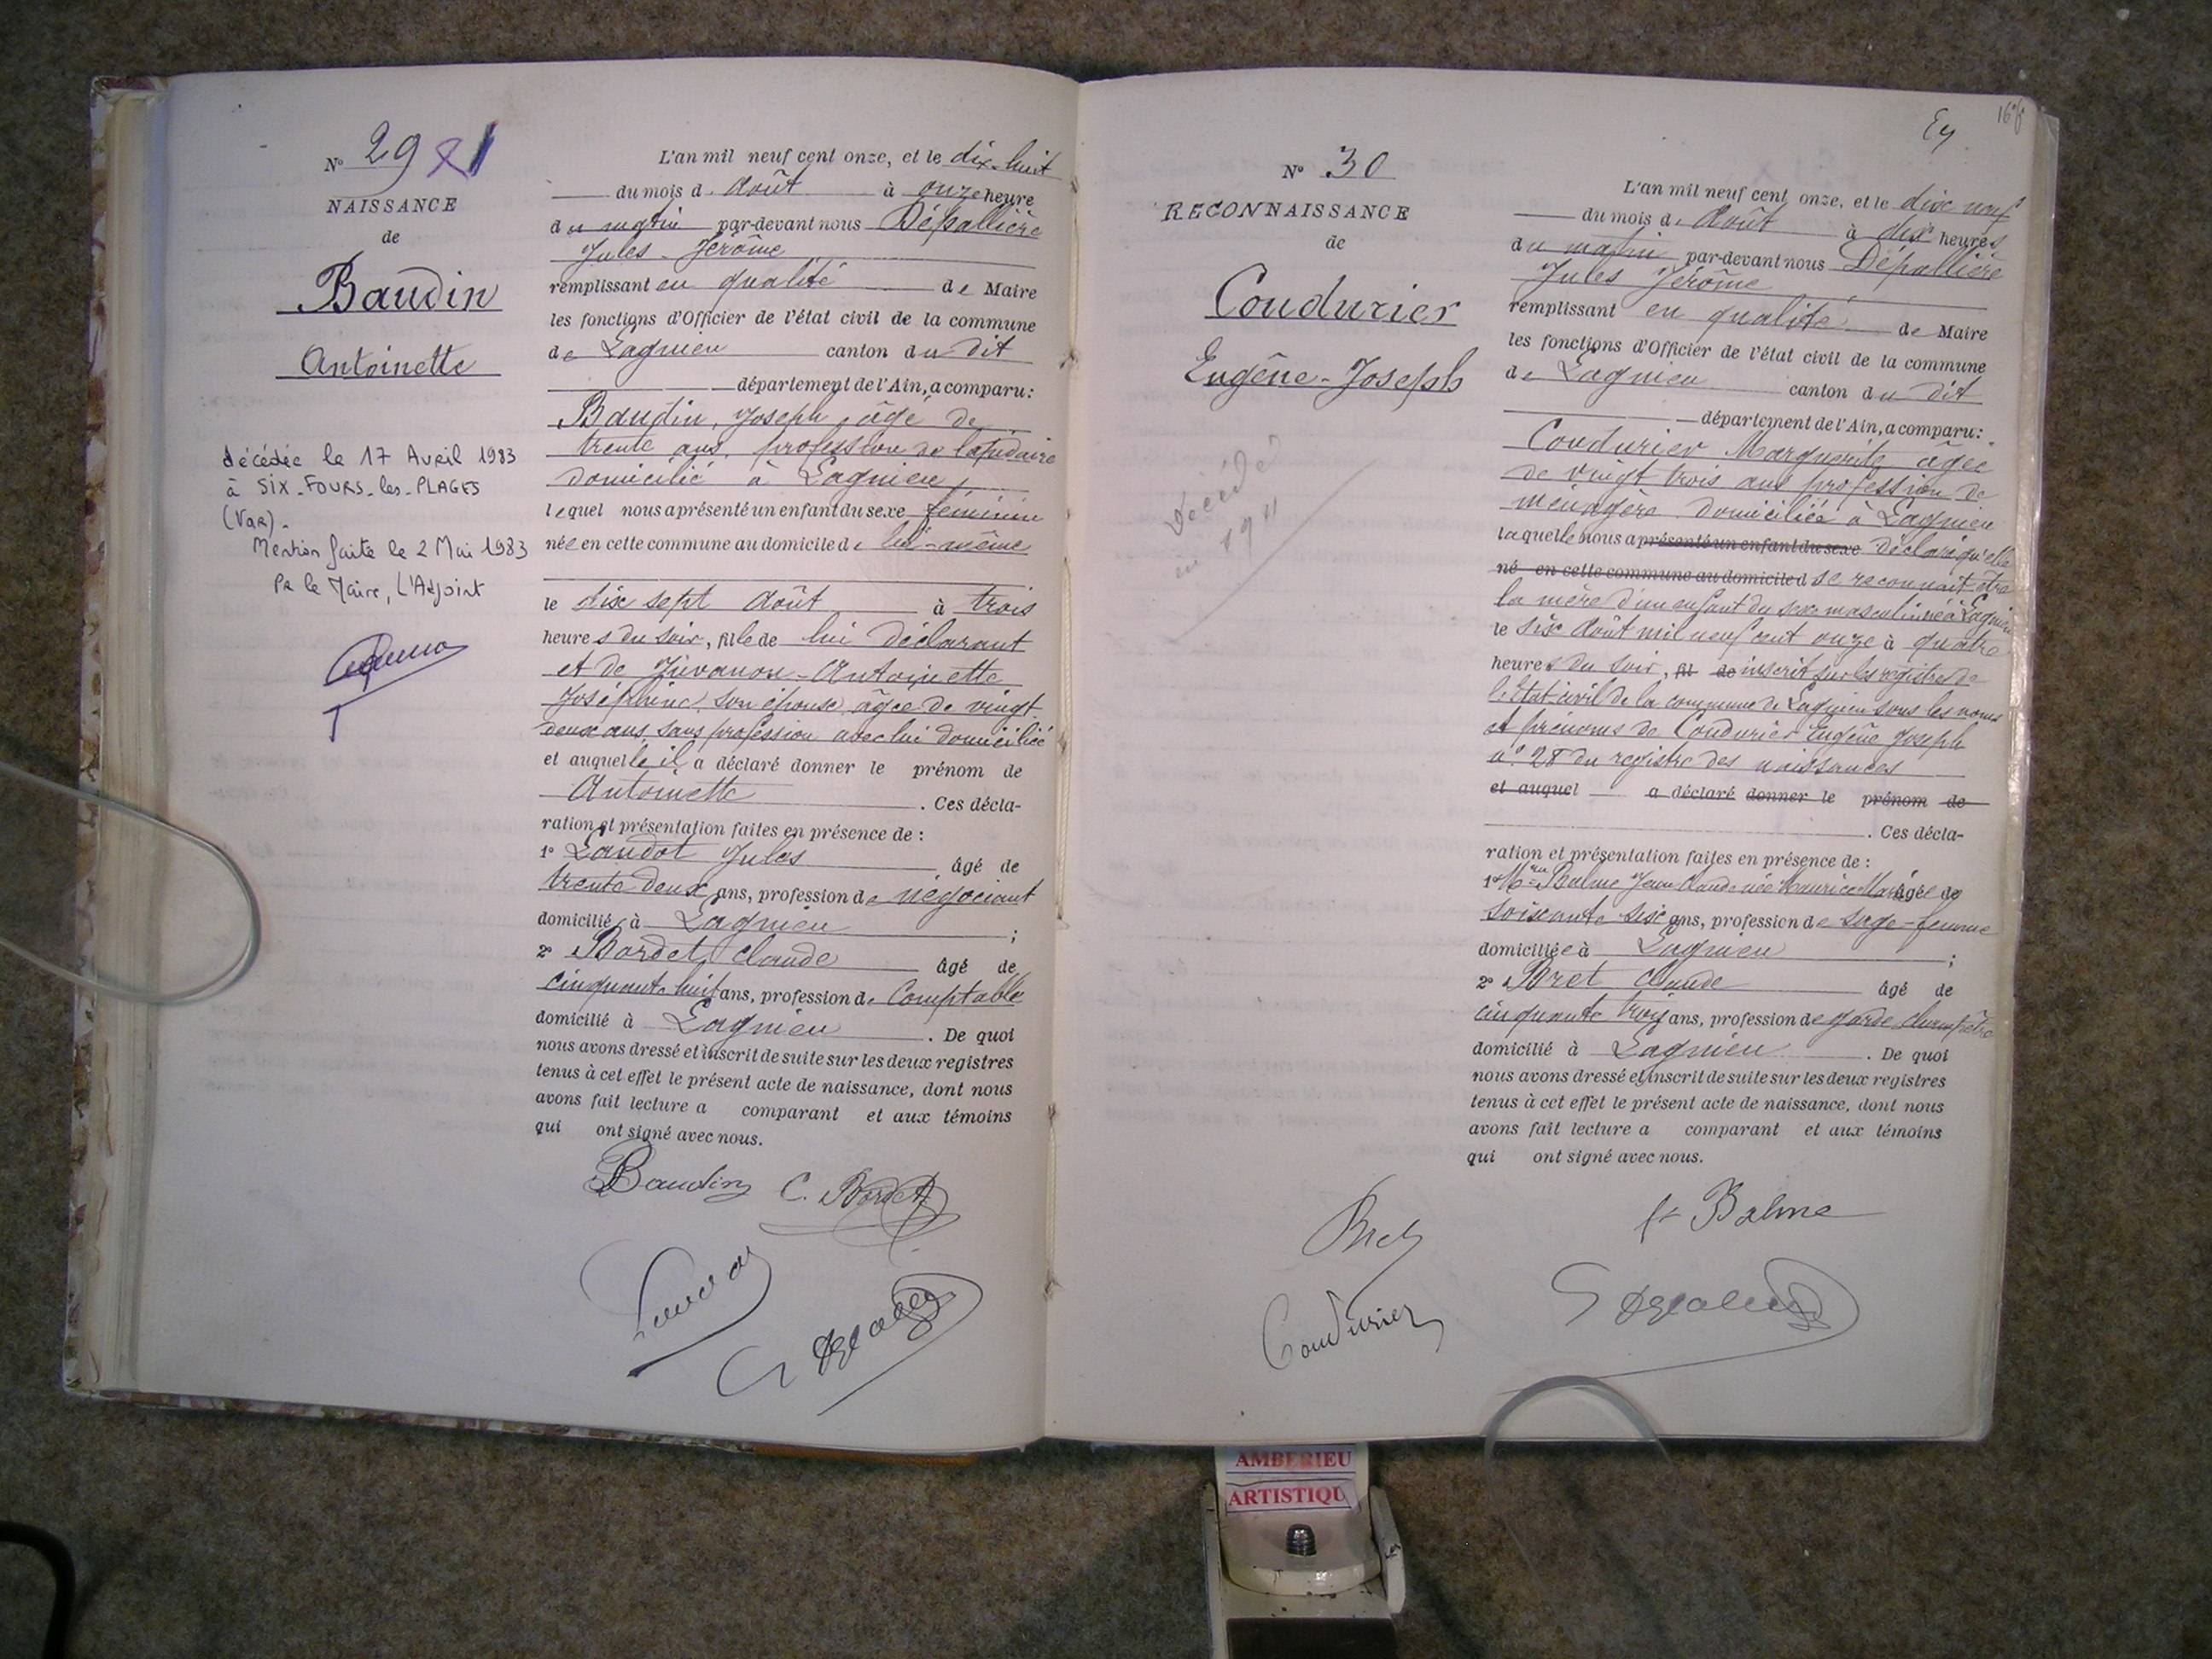 N° 29
NAISSANCE
de
Baudin
Antoinette
décédée le 17 Avril 1983
à SIX-FOURS-les-PLAGES
(Var).
Mention faite le 2 Mai 1983
Pr le Maire, L'Adjoint
L'an mil neuf cent onze, et le dix-huit
du mois d'Août à onze heure
du matin par-devant nous Dépallière
Jules-Jérôme
remplissant en qualité de Maire
les fonctions d'Officier de l'état civil de la commune
de Lagnieu canton du dit
département de l'Ain, a comparu:
Baudin, Joseph, âgé de
trente ans, profession de lapidaire
domicilié à Lagnieu,
lequel nous a présenté un enfant du sexe féminin
née en cette commune au domicile de lui-même
le dix sept Août à trois
heures du soir, fille de lui déclarant
et de Juvanon-Antoinette
Joséphine, son épouse, âgée de vingt
deux ans, sans profession avec lui domiciliée
et auquelle il a déclaré donner le prénom de
Antoinette. Ces décla-
ration et présentation faites en présence de :
1° Landot Jules âgé de
trente deux ans, profession de négociant
domicilié à Lagnieu;
2° Bordet Claude âgé de
cinquante huit ans, profession de Comptable
domicilié à Lagnieu. De quoi
nous avons dressé et inscrit de suite sur les deux registres
tenus à cet effet le présent acte de naissance, dont nous
avons fait lecture a comparant et aux témoins
qui ont signé avec nous.
Baudin C. Bordet
16
N° 30
RECONNAISSANCE
de
Coudurier
Eugêne-Joseph
Décédé
en 1911
L'an mil neuf cent onze, et le dix neuf
du mois d'Août à dix heures
du matin par-devant nous Dépallière
Jules Jérôme
remplissant en qualité de Maire
les fonctions d'Officier de l'état civil de la commune
de Lagnieu canton du dit
département de l'Ain, a comparu:
Coudurier Marguerite âgée
de vingt trois ans profession de
ménagère domiciliée à Lagnieu
laquelle nous a présenté un enfant du sexe déclaré qu'elle
né en cette commune au domicile d se reconnait être
la mère d'un enfant du sexe masculin né à Lagnieu
le six Août mil neuf cent onze à quatre
heures du soir, fil de inscrit sur les registres de
l'Etat-civil de la commune de Lagnieu sous les noms
et prénoms de Coudurier Eugêne Joseph
n° 28 du registre des naissances
et auquel a déclaré donner le prénom de
. Ces décla-
ration et présentation faites en présence de :
1° Balme Jean Claude née Maurice Marie âgée de
soixante six ans, profession de sage-femme
domiciliée à Lagnieu;
2° Bret Claude âgé de
cinquante trois ans, profession de garde champêtre
domicilié à Lagnieu. De quoi
nous avons dressé et inscrit de suite sur les deux registres
tenus à cet effet le présent acte de naissance, dont nous
avons fait lecture a comparant et aux témoins
qui ont signé avec nous.
Bret
Balme
Coudurier
AMBERIEU
ARTISTIQU